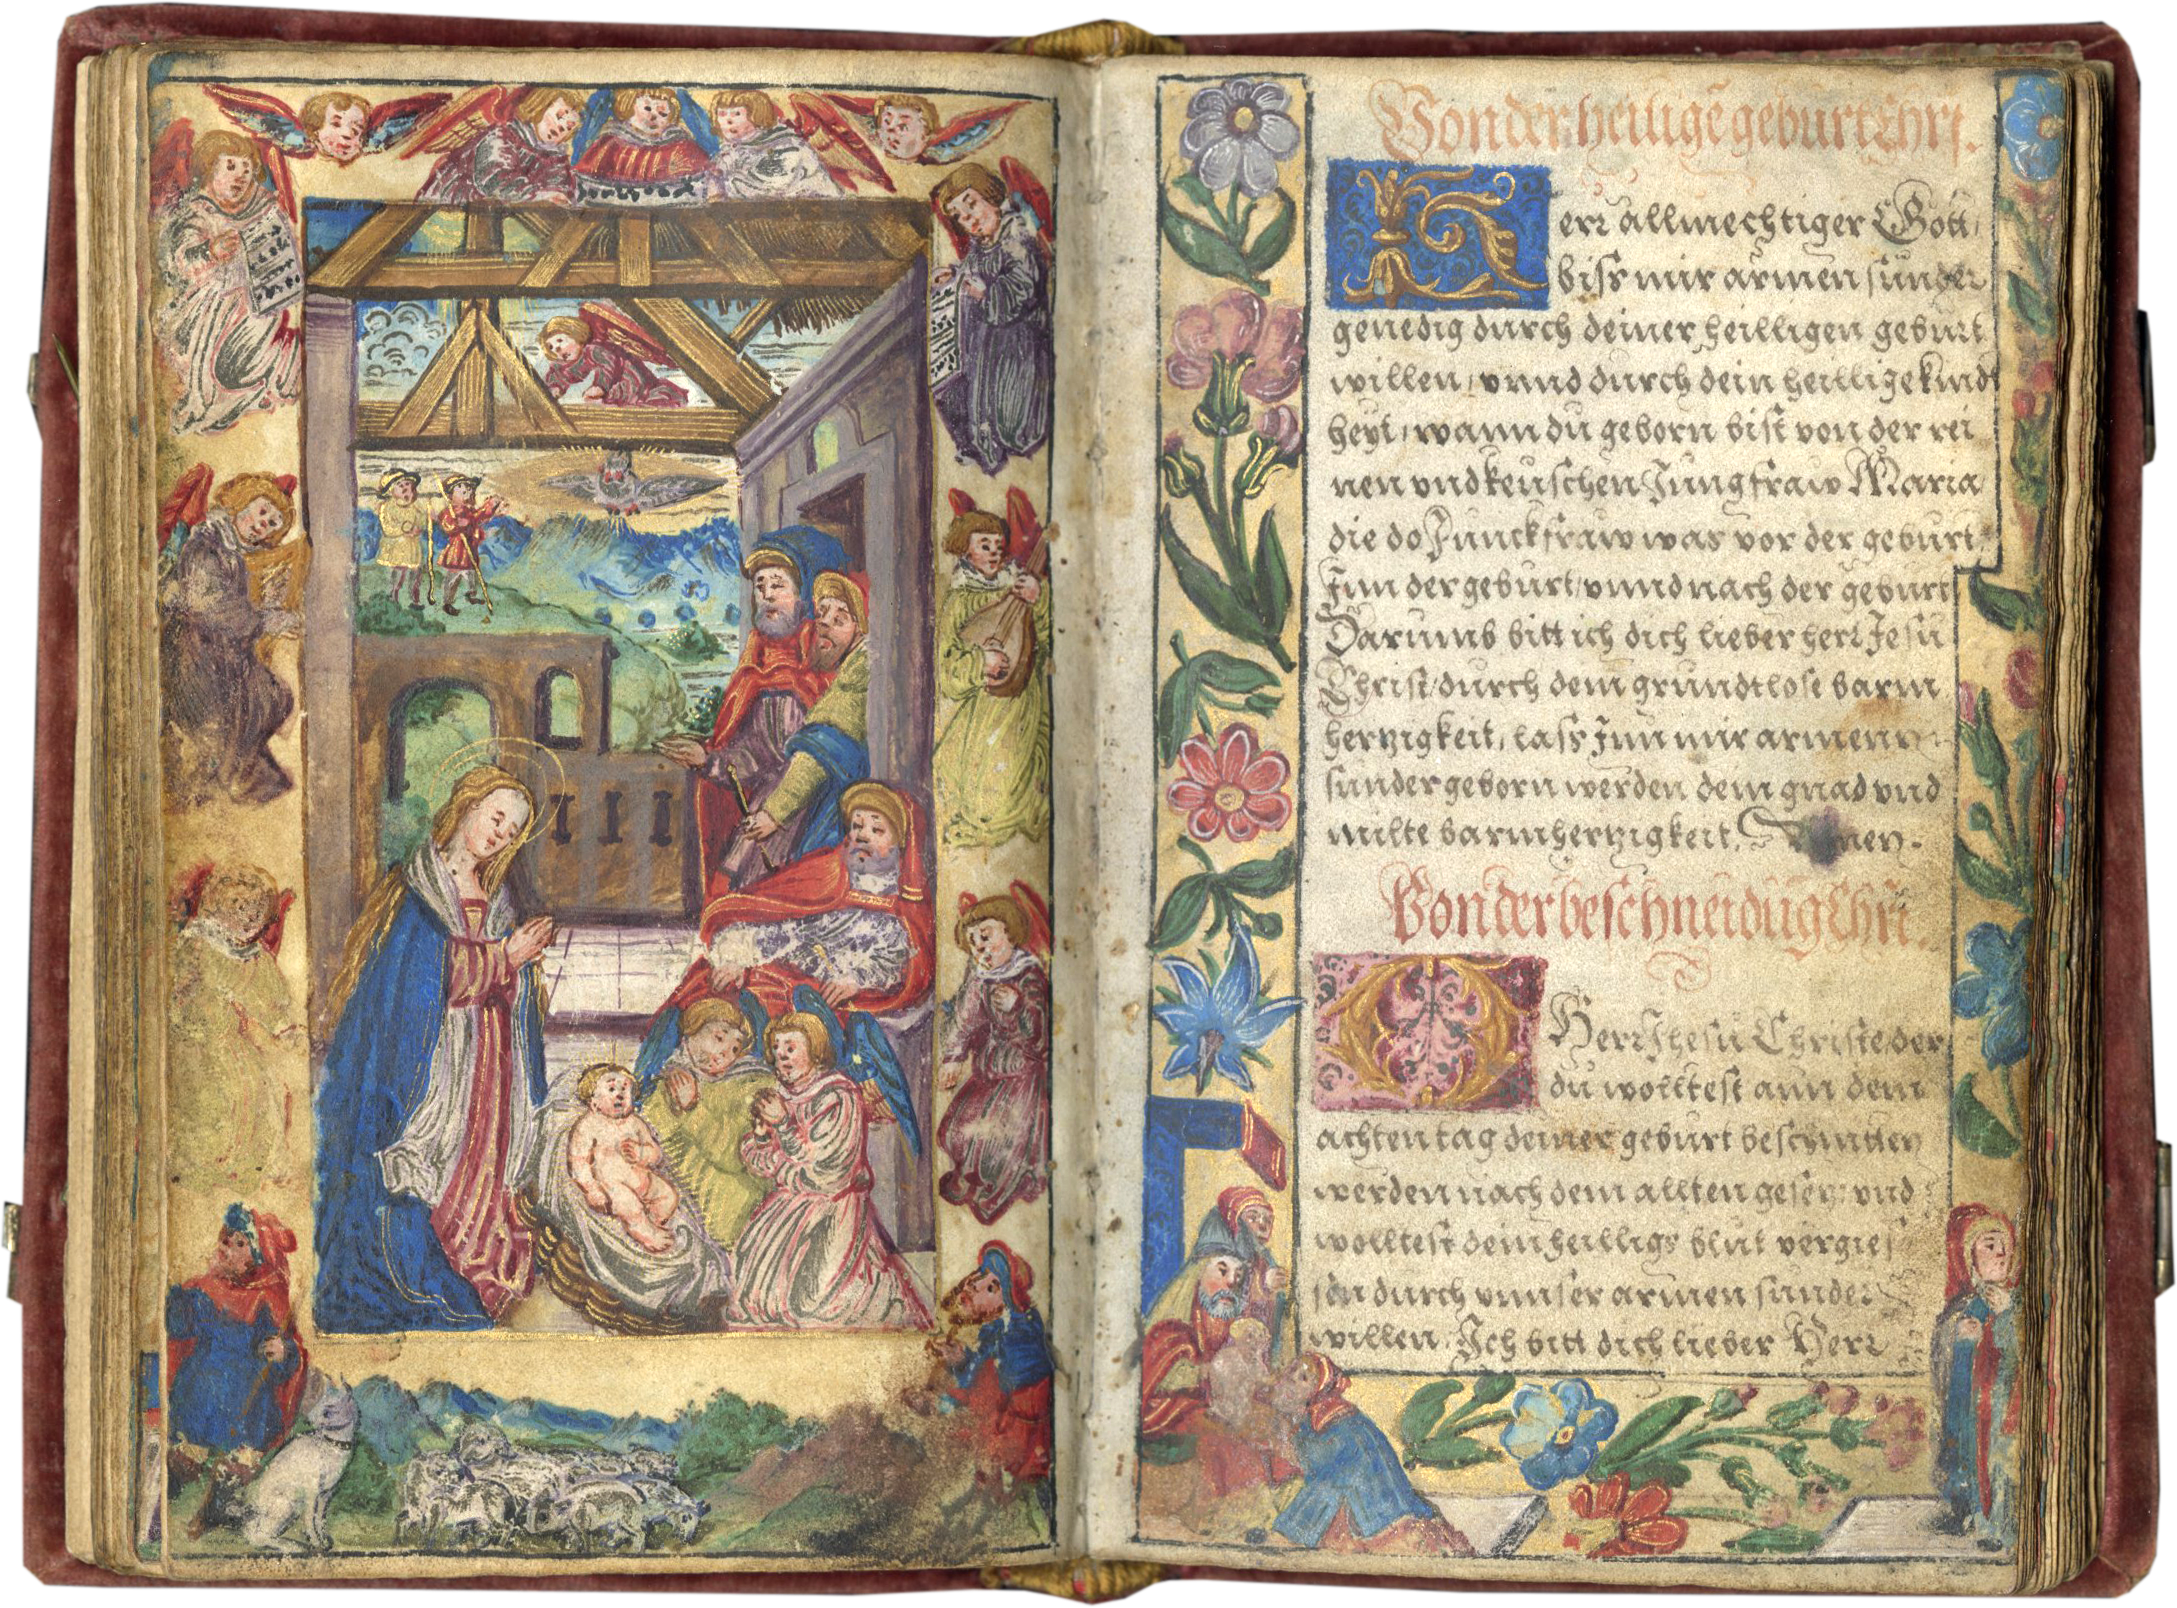 Von der heiligē geburt Chri.
Herr allmechtiger Gott,
biss mir armen sunder
genedig durch deiner heilligen geburt
willen, vnnd durch dein heillige kindt
heyt, wann du geborn bist von der rei
nen vnd keuschen Jungfraw Maria
die do Junckfraw was vor der geburt,
Inn der geburt, vnnd nach der geburt
Darumb bitt ich dich lieber herr Jesu
Christ, durch dein grundtlose barm
hertzigkeit, lass Inn mir armenn
sunder geborn werden dein gnad vnd
milte barmhertzigkeit. Amen.
Von der beschneidūg Chri.
O Herr Jhesu Christe der
du wolltest ann dem
achten tag deiner geburt beschnitten
werden nach dem allten gesetz vnd
wolltest dein heilligs blut vergies
sen durch vnnser armen sunder
willen. Ich bitt dich lieber Herr